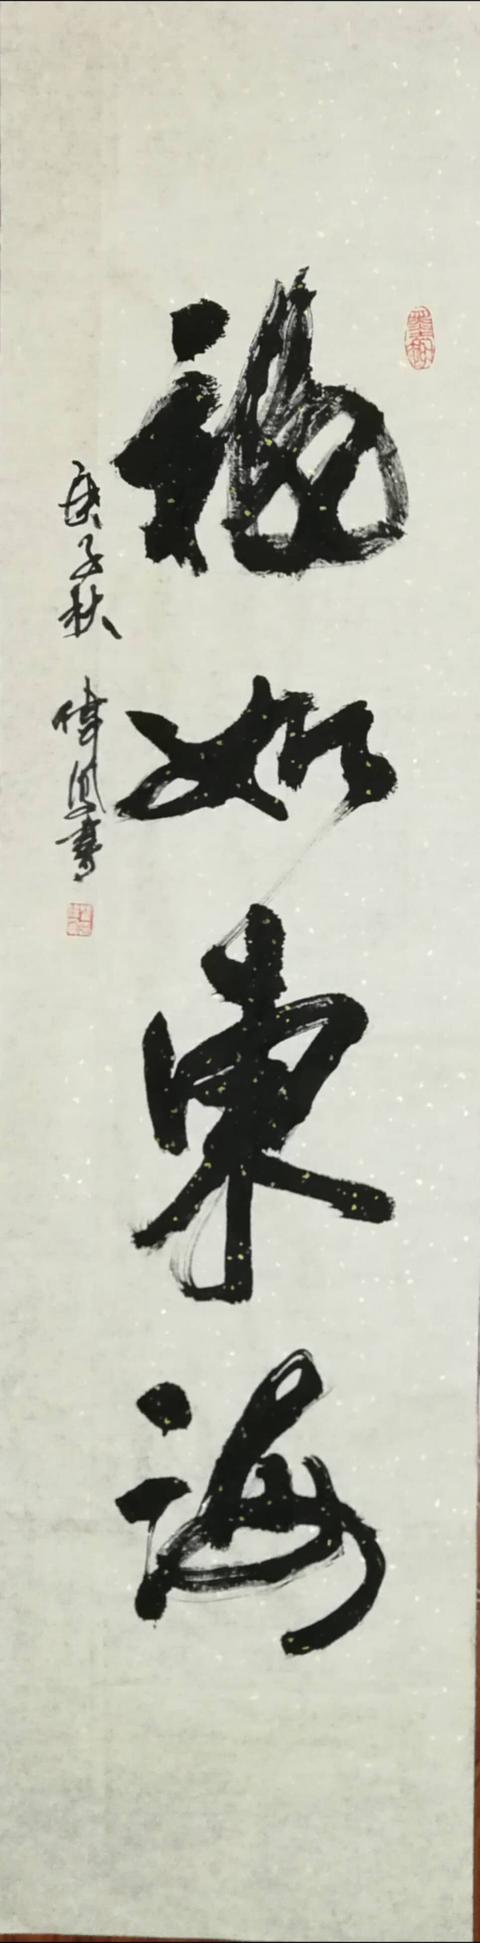 福如東海
庚子秋 偉鳳書